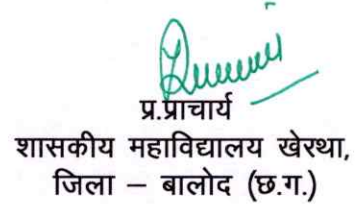 प्र.प्राचार्य
शासकीय महाविद्यालय खेरथा,
जिला – बालोद (छ.ग.)